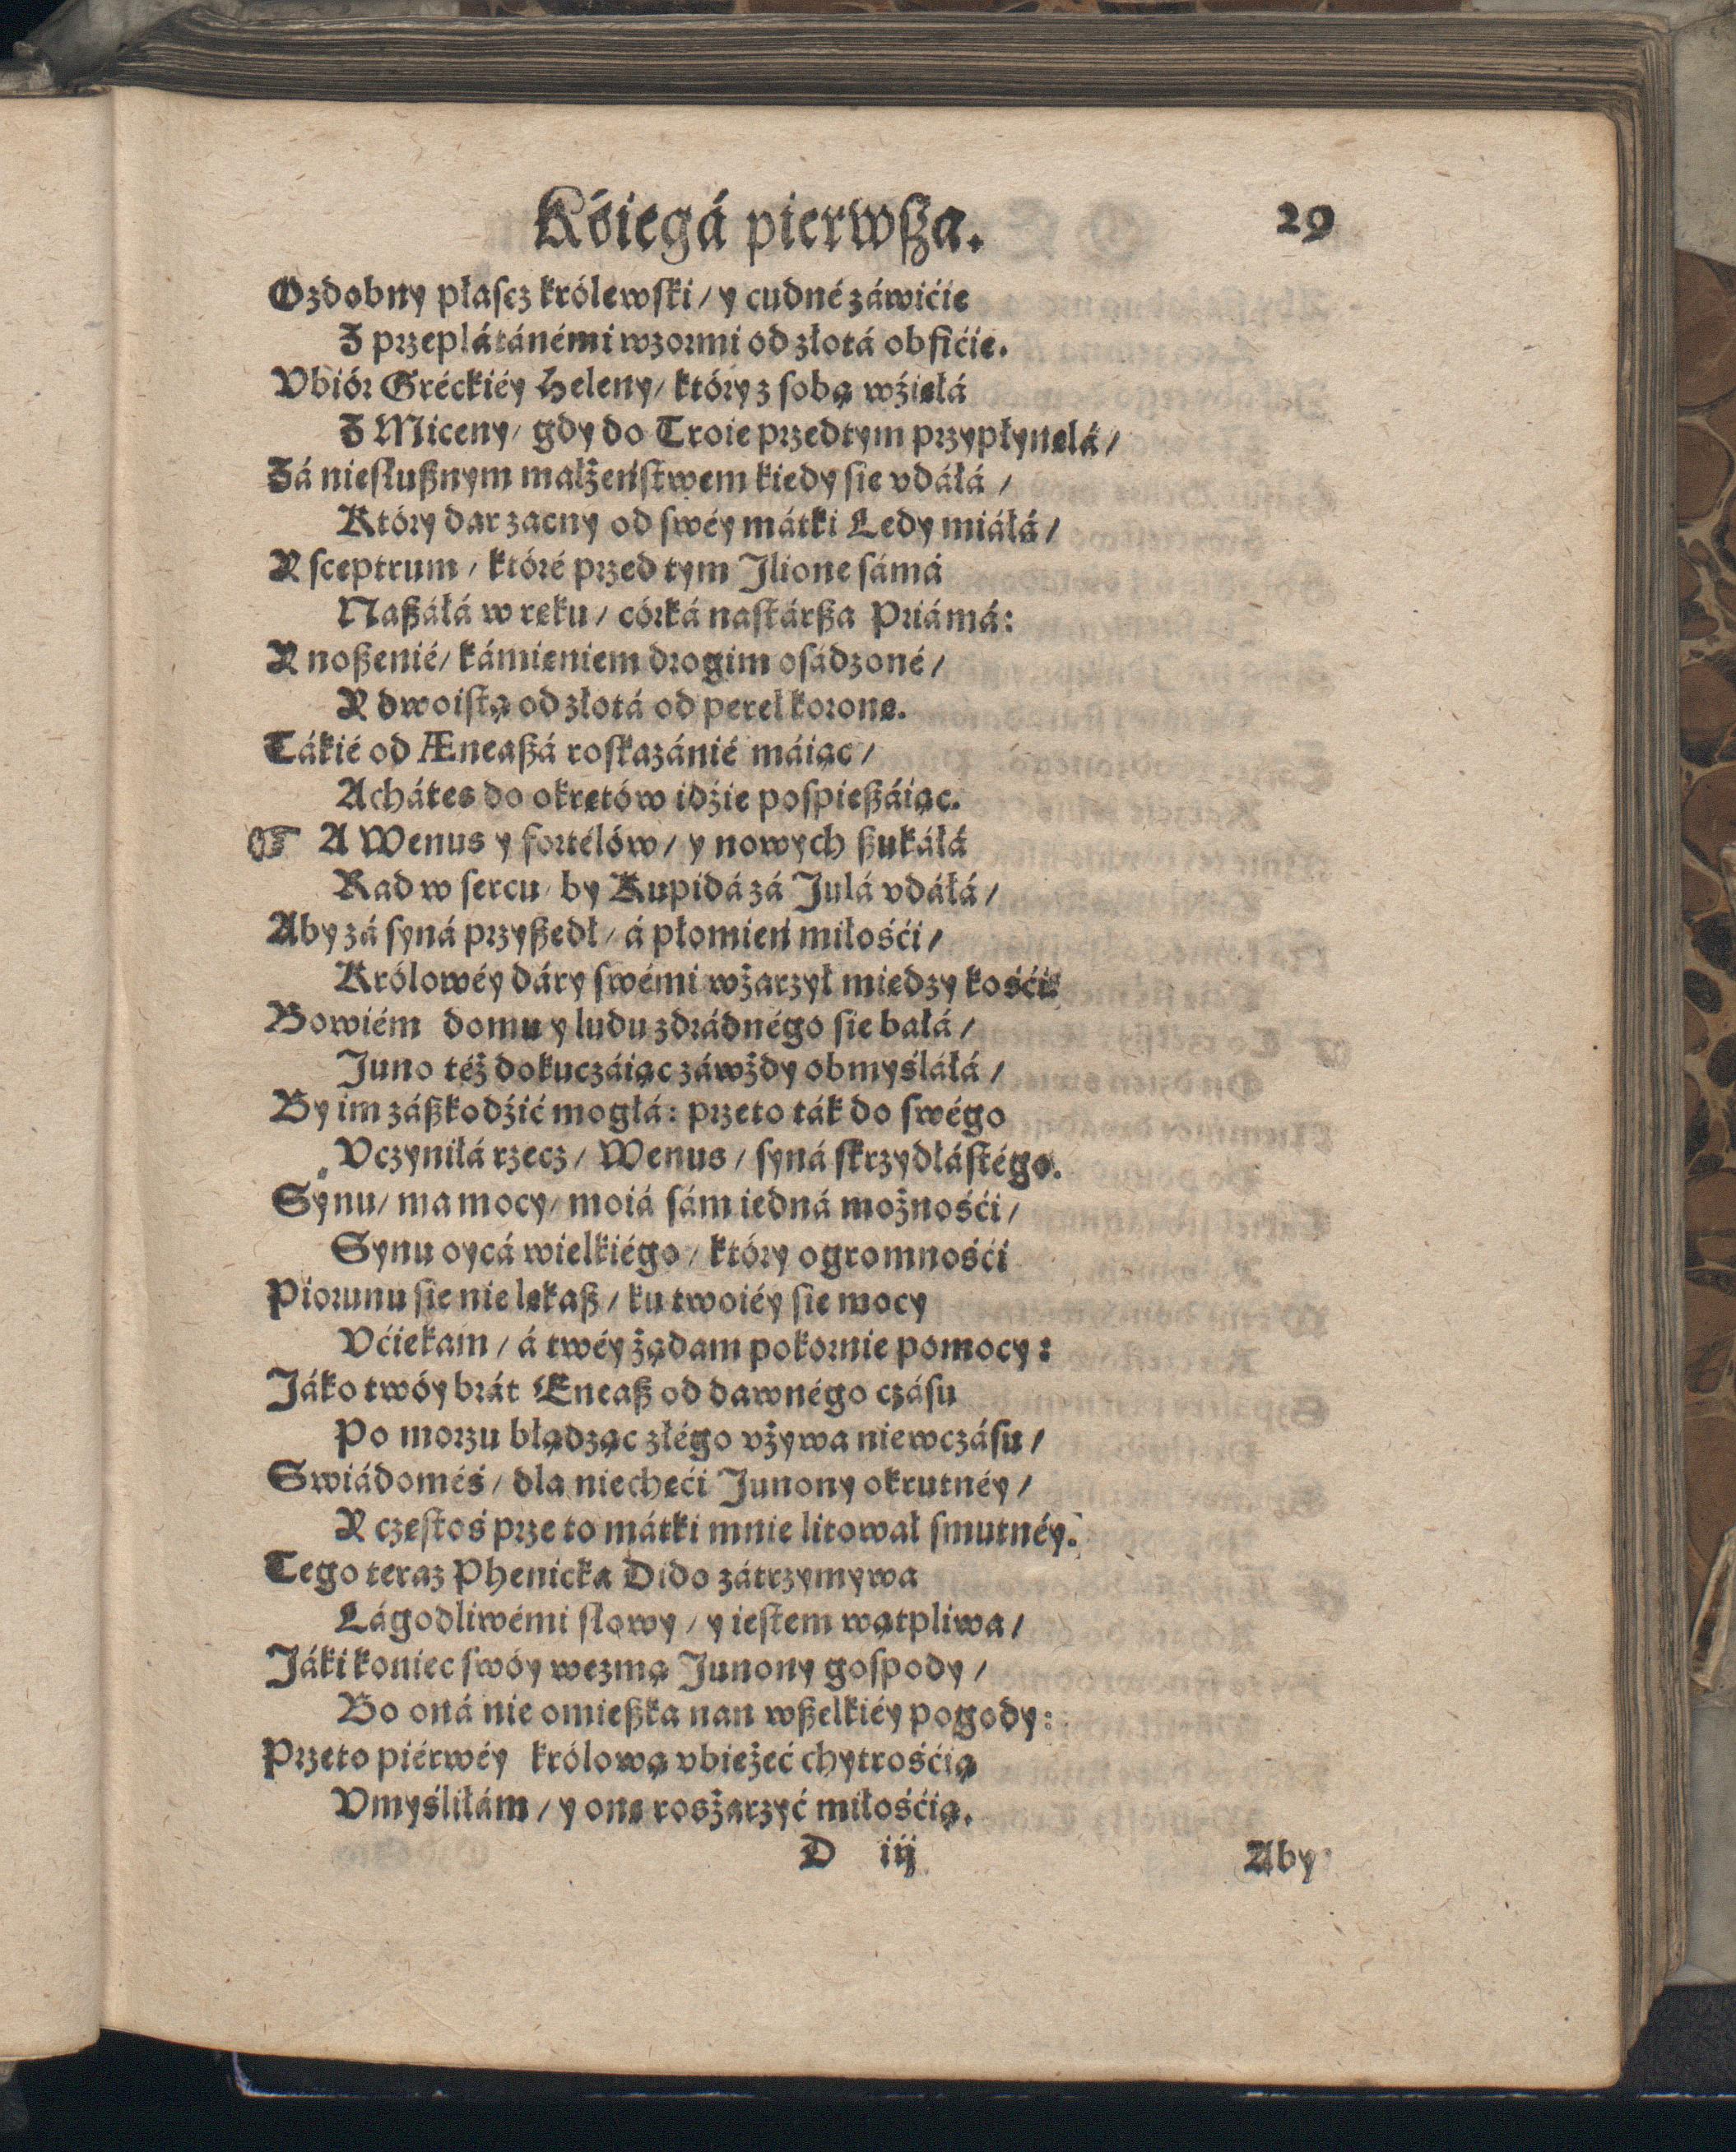 Księgá pierwſza. 29
Ozdobny płaſcz królewſki / y cudné záwićie
Z przeplátánémi wzormi od złotá obfićie.
Vbiór Gréckiéy Heleny / który z ſobą wźięłá
Z Miceny / gdy do Troie przedtym przypłynęłá /
Zá nieſłußnym małżeńſtwem kiedy ſie vdáłá /
Który dar zacny od ſwéy mátki Ledy miáłá /
Y ſceptrum / któré przed tym Jlione ſámá
Naßáłá w ręku / córká naſtárßa Priámá:
Y noßenié / kámieniem drogim oſádzoné /
Y dwoiſtą od złotá od pereł koronę.
Tákié od Æneaßá roſkazánié máiąc /
Achátes do okrętów idźie poſpießáiąc.
☞ A Wenus y fortélów / y nowych ßukáłá
Rad w ſercu / by Kupidá zá Julá vdáłá /
Aby zá ſyná przyßedł / á płomień miłośći /
Królowéy dáry ſwémi wżarzył miedzy kośći:
Bowiém domu y ludu zdrádnégo ſie bałá /
Juno téż dokuczáiąc záwżdy obmyśláłá /
By im záßkodźić mogłá: przeto ták do ſwégo
Vczyniłá rzecz / Wenus / ſyná ſkrzydłáſtégo.
Synu / ma mocy / moiá ſám iedná możnośći /
Synu oycá wielkiégo / który ogromnośći
Piorunu ſie nie lękaß / ku twoiéy ſie mocy
Vćiekam / á twéy żądam pokornie pomocy:
Jáko twóy brát Eneaß od dawnégo czáſu
Po morzu błądząc złégo vżywa niewczáſu /
Swiádoméś / dla niechęći Junony okrutnéy /
Y częſtoś prze to mátki mnie litował ſmutnéy.
Tego teraz Phenicka Dido zátrzymywa
Łágodliwémi ſłowy / y ieſtem wątpliwa /
Jáki koniec ſwóy wezmą Junony goſpody /
Bo oná nie omießka nan wßelkiéy pogody:
Przeto piérwéy królową vbieżeć chytrośćią
Vmyśliłám / y onę rosżarzyć miłośćią.
D iij Aby